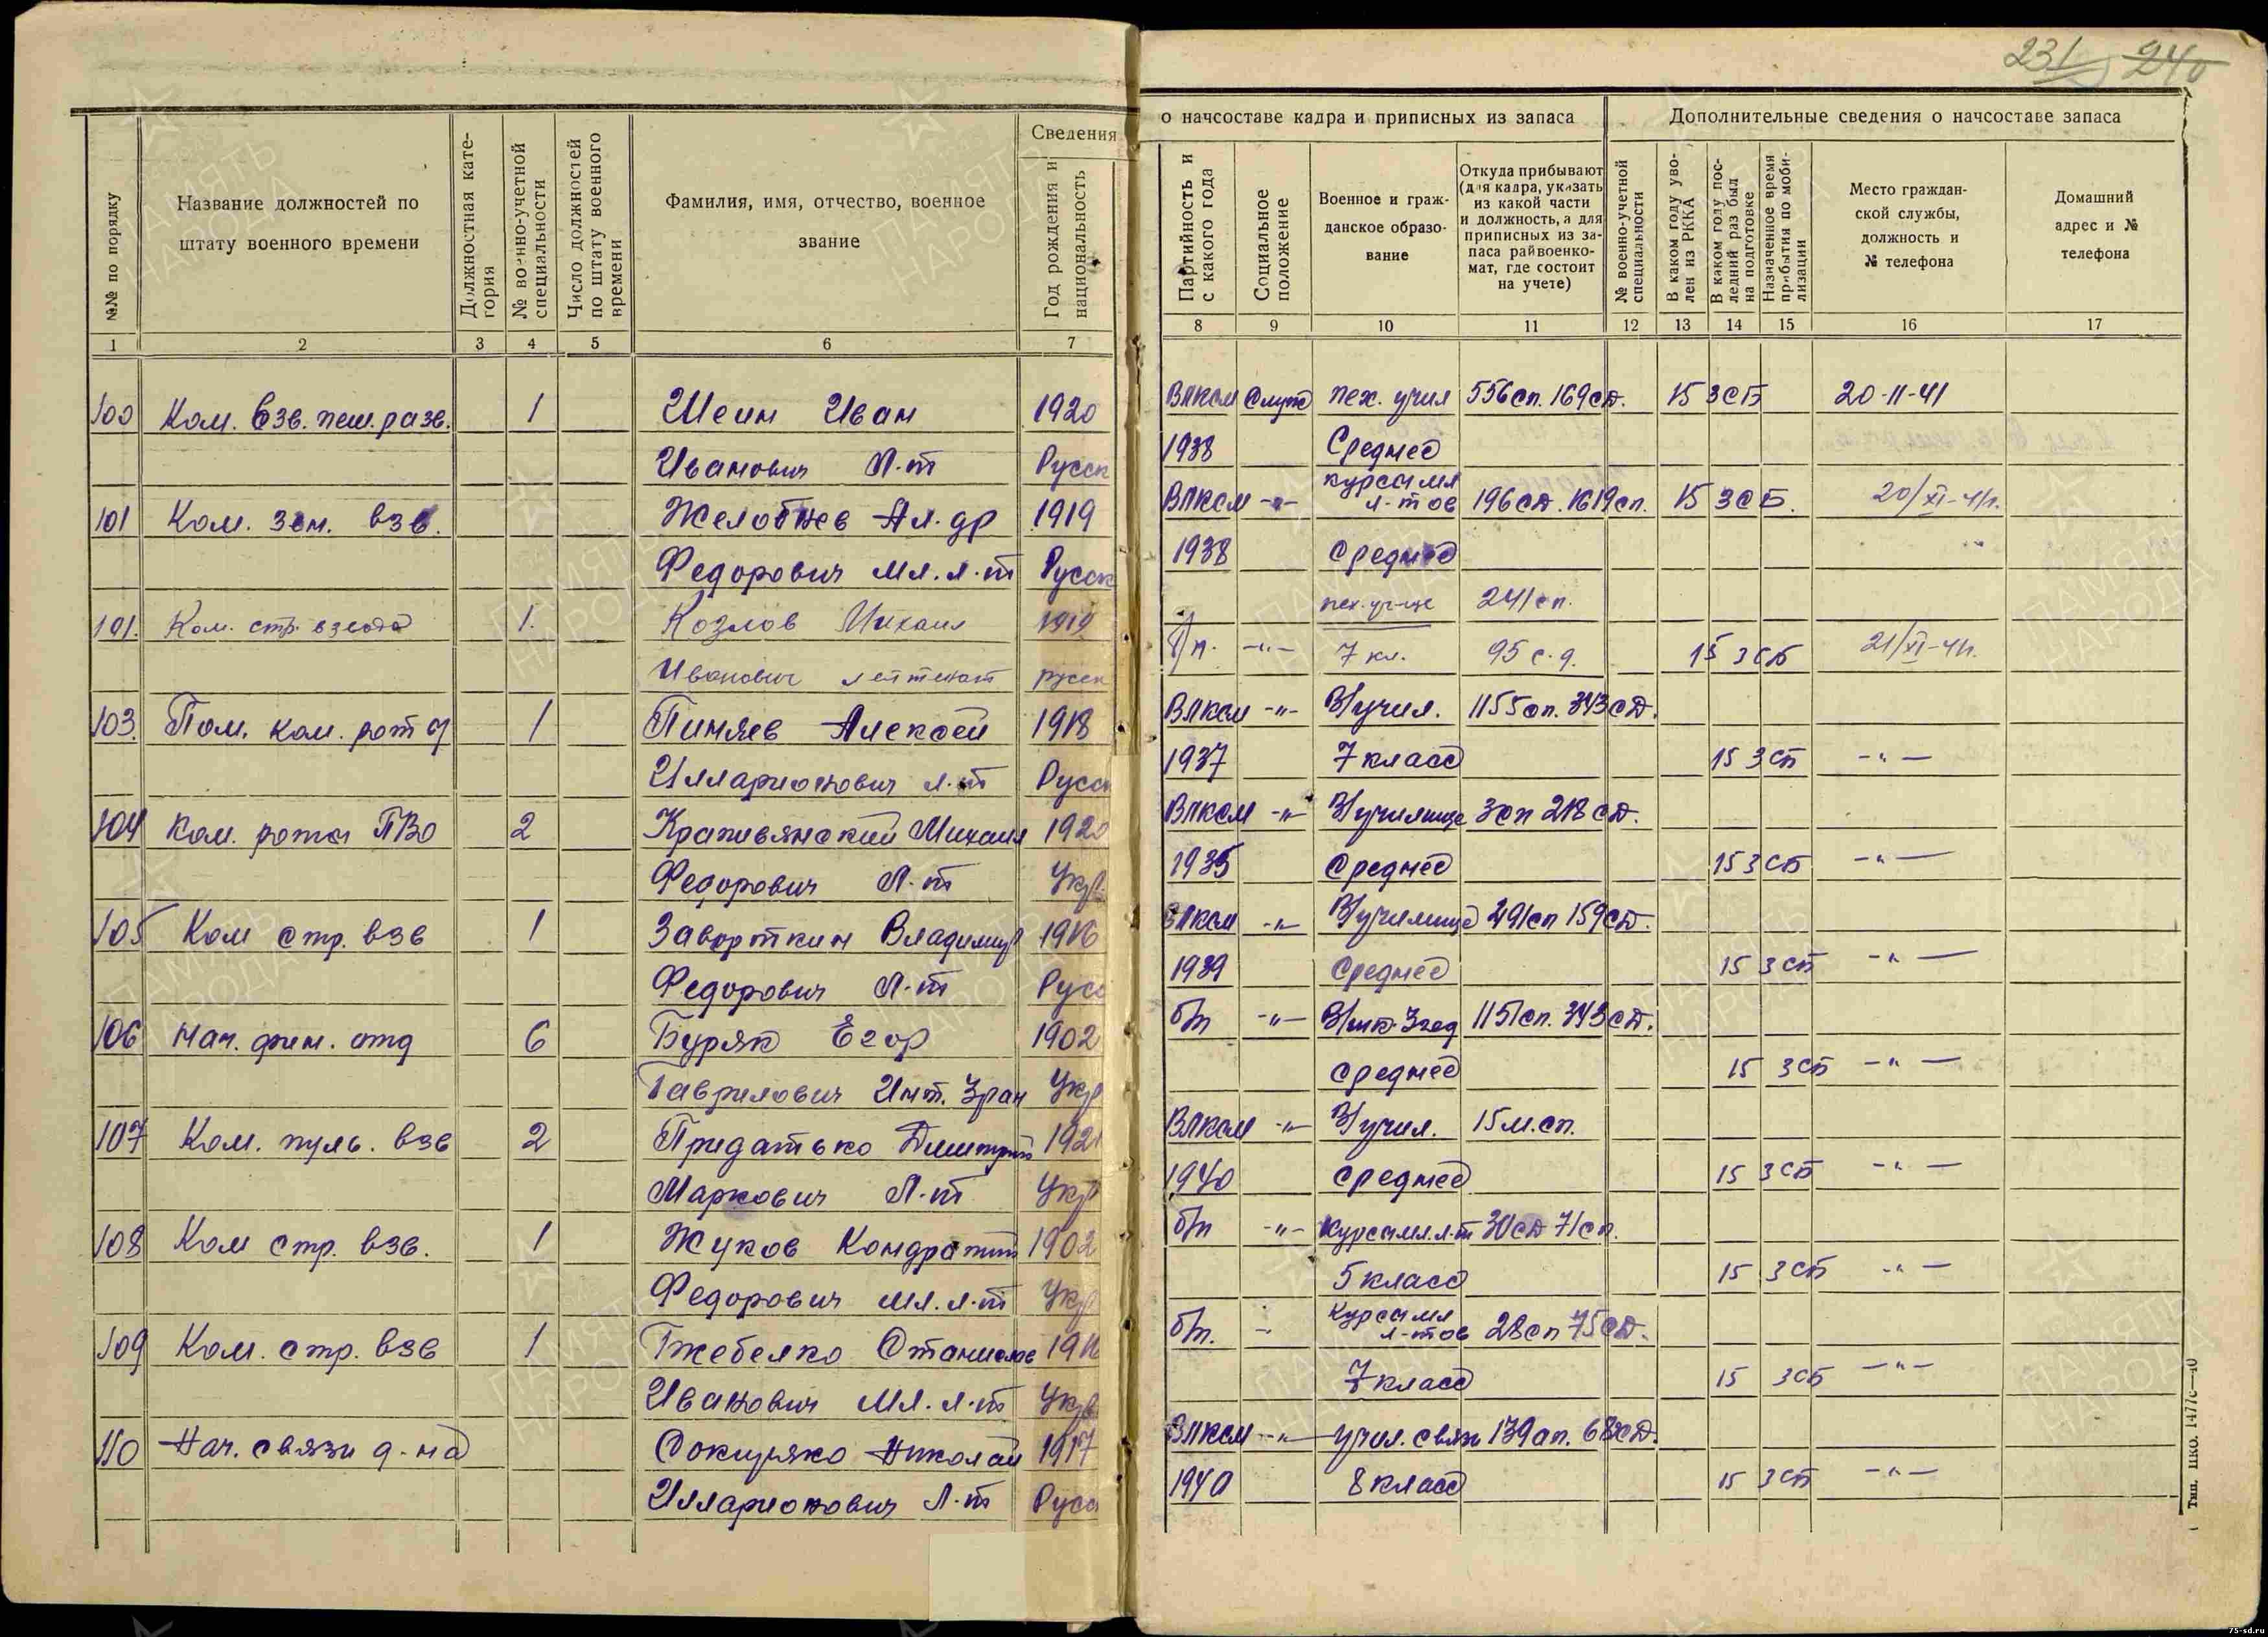 231 240
Сведения о начсоставе кадра и приписных из запаса
Дополнительные сведения о начсоставе запаса
№№ по порядку
Название должностей по штату военного времени
Должностная категория
№ военно-учетной специальности
Число должностей по штату военного времени
Фамилия, имя, отчество, военное звание
Год рождения и национальность
Партийность и с какого года
Социальное положение
Военное и гражданское образование
Откуда прибывают (для кадра, указать из какой части и должность, а для приписных из запаса райвоенкомат, где состоит на учете)
№ военно-учетной специальности
В каком году уволен из РККА
В каком году последний раз был на подготовке
Назначенное время прибытия по мобилизации
Место гражданской службы, должность и № телефона
Домашний адрес и № телефона
1 2 3 4 5 6 7 8 9 10 11 12 13 14 15 16 17
100 Ком. взв. пеш. разв. 1 Шеин Иван 1920 Влксм Служ пех. учил 556 сп. 169 сд. 15 ЗСБ 20-11-41
Иванович Л-т Русск 1938 Среднее
101 Ком. зен. взв. Желобнев Ал-др 1919 Влксм -"- курсы мл л-тов 196 сд. 1619 сп. 15 ЗСБ. 20/XI-41г.
Федорович Мл. л-т Русск 1938 Среднее
101. Ком. стр. взвода 1. Козлов Михаил 1919 пех. уч-ще 241 сп.
Иванович лейтенант русск б/п. -"- 7 кл. 95 с.д. 15 ЗСБ 21/XI-41г.
103. Пом. ком. роты 1 Пиняев Алексей 1918 Влксм -"- В/учил. 1155 сп. 343 сд.
Илларионович л-т Русс 1937 7 класс 15 ЗСП -"-
104 Ком. роты ПВО 2 Крапивянский Михаил 1920 Влксм -"- В/училище 3 сп 218 сд.
Федорович Л-т Укр. 1935 Среднее 15 ЗСБ -"-
105 Ком стр. взв 1 Завороткин Владимир 1916 Влксм -"- В/училище 491 сп 159 сд.
Федорович Л-т Русс 1939 Среднее 15 ЗСБ -"-
106 Нач. фин. отд 6 Буряк Егор 1902 б/п -"- 1151 сп. 343 сд.
Гаврилович Инт. 3 ран Укр Среднее 15 ЗСБ -"-
107 Ком. пуль. взв 2 Придатько Дмитрий 1921 Влксм -"- В/учил. 15 м.сп.
Маркович Л-т Укр 1940 Среднее 15 ЗСБ -"-
108 Ком стр. взв. 1 Жуков Кондратий 1902 б/п -"- Курсы мл. л-т 30 сд 71 сп.
Федорович мл. л-т Укр 5 класс 15 ЗСБ -"-
109 Ком. стр. взв 1 Гжебелко Станислав 1916 б/п. - Курсы мл л-тов 28 сп 75 сд.
Иванович Мл. л-т Укр 7 класс 15 ЗСБ -"-
110 Нач. связи д-на Сокиряко Николай 1917 Влксм -"- учил. связи 139 ап. 68 сд.
Илларионович Л-т Русс 1940 8 класс 15 ЗСБ -"-
Тип. НКО. 1477с—40
ПАМЯТЬ НАРОДА
75-sd.ru